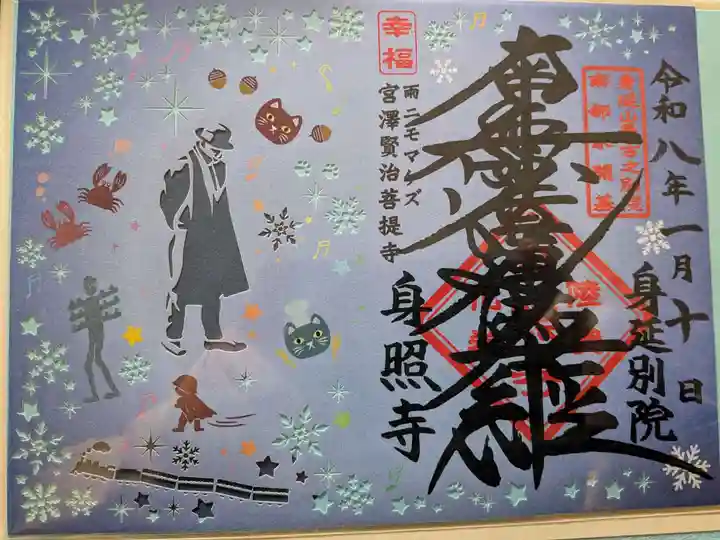 令和八年一月十日
身延別院
南無妙法蓮華経
幸福
雨ニモマケズ
宮澤賢治菩提寺
身照寺